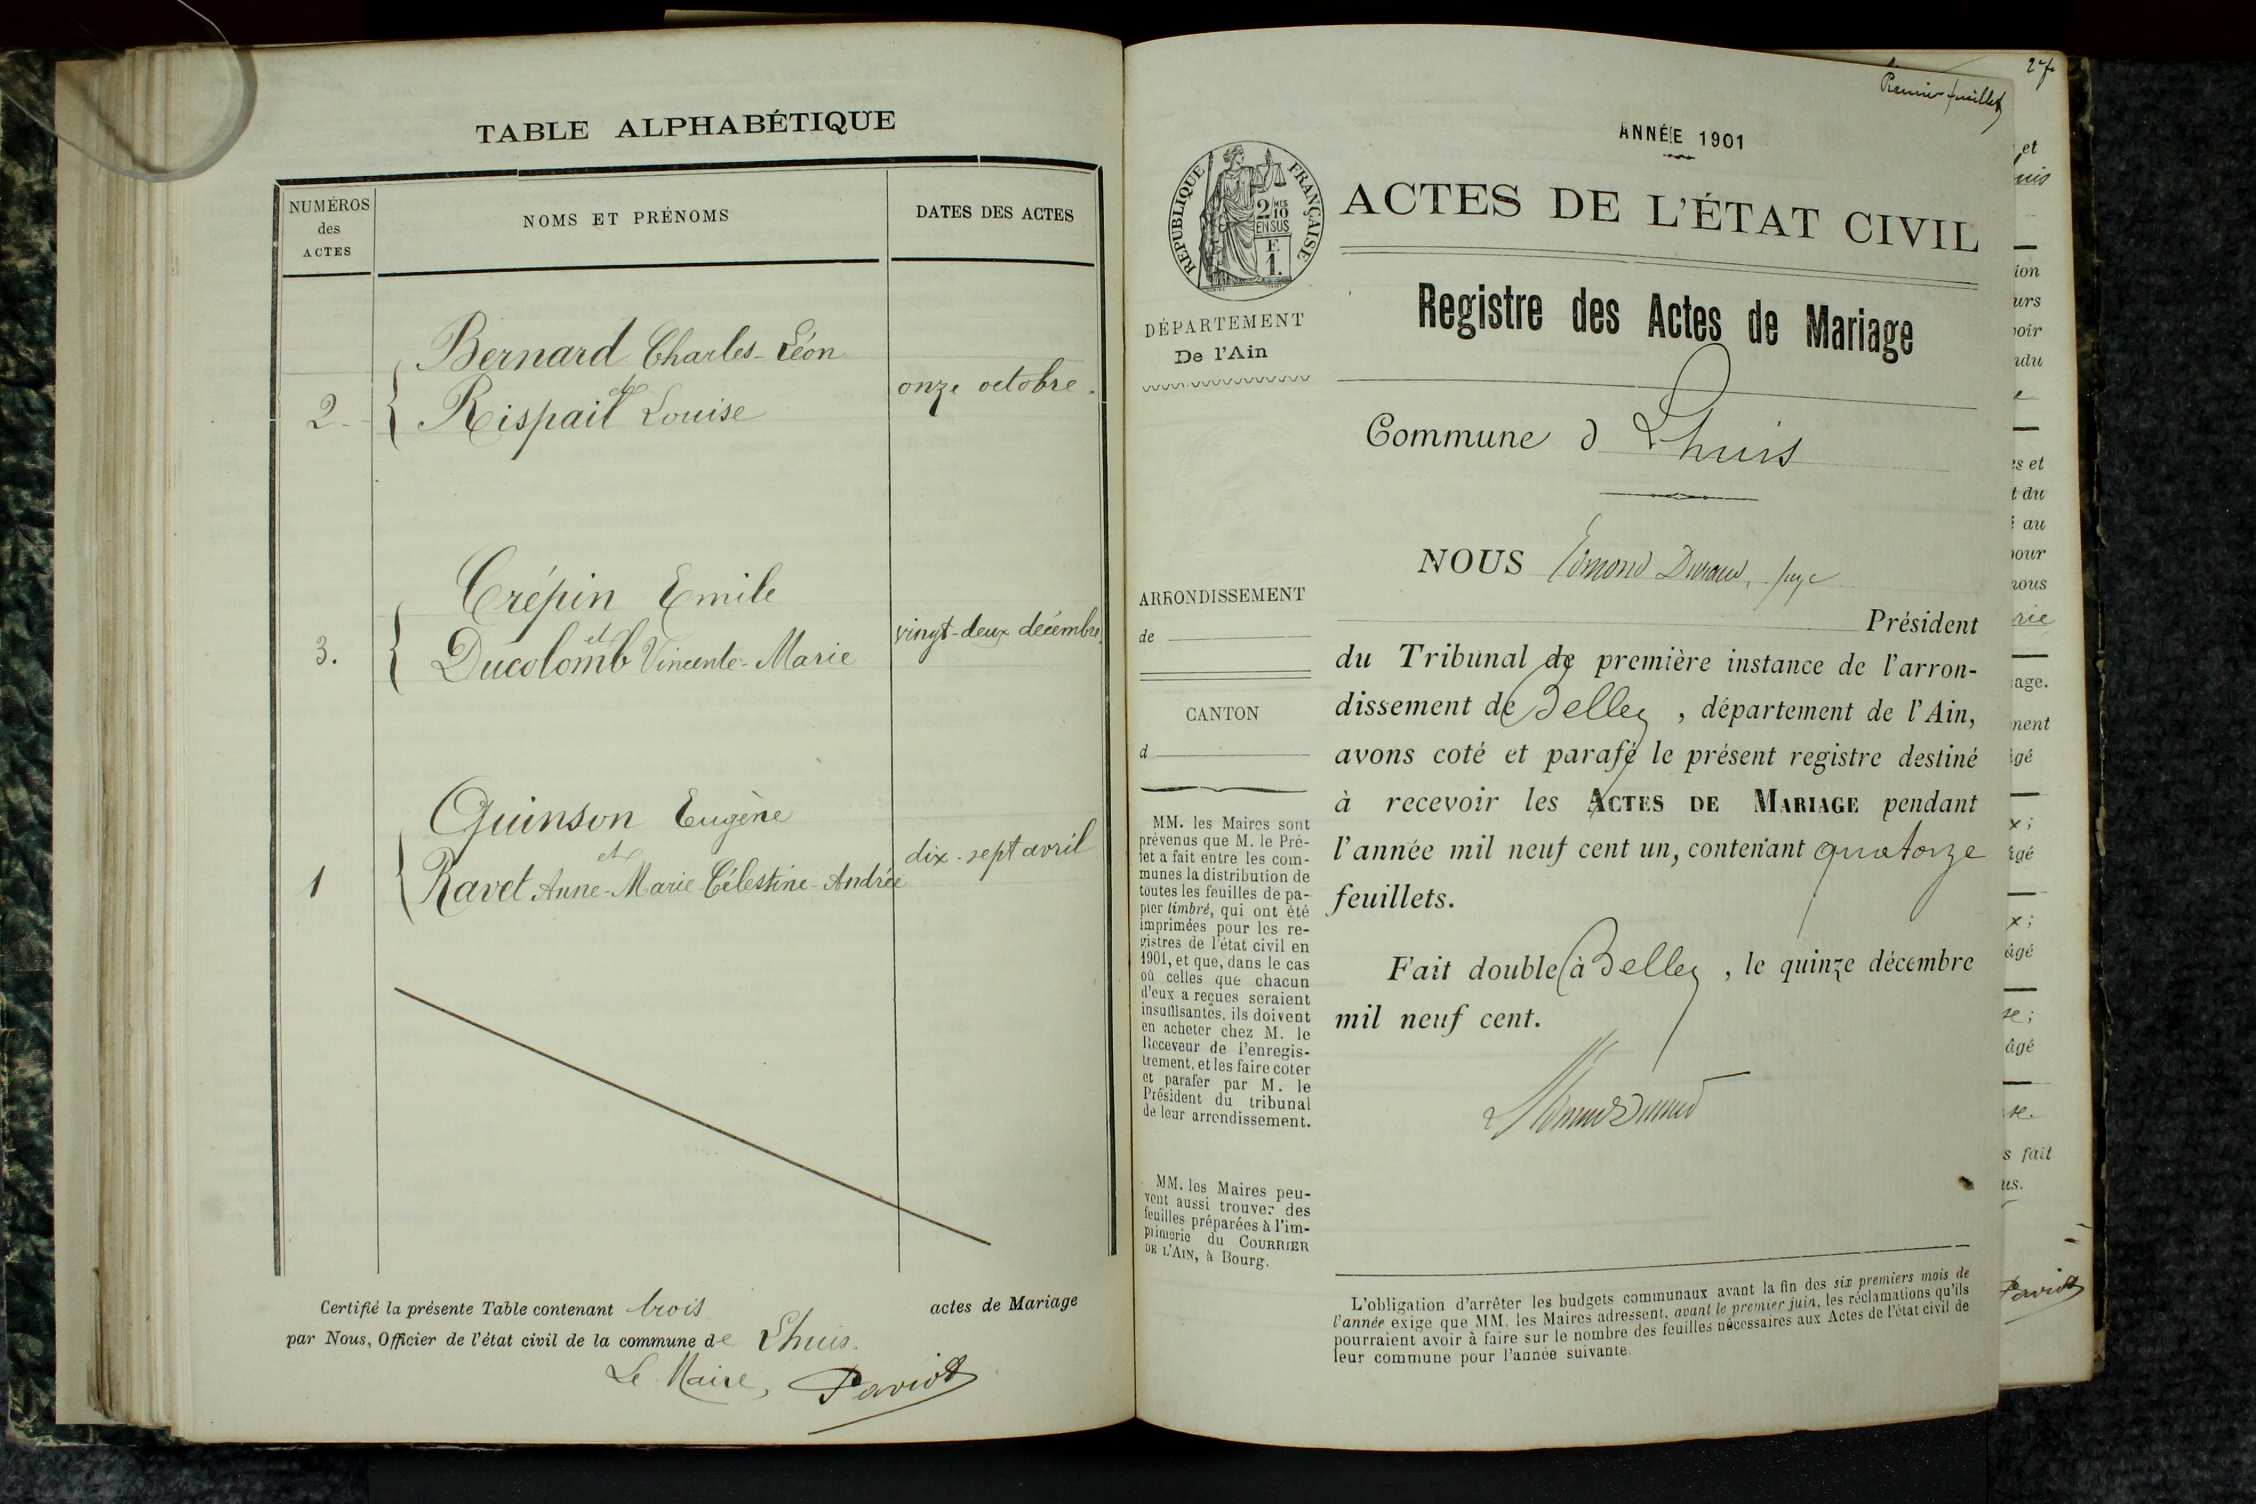 TABLE ALPHABÉTIQUE
NUMÉROS
des
ACTES
NOMS ET PRÉNOMS
DATES DES ACTES
Bernard Charles-Léon
et
2. Rispail Louise
onze octobre.
Crépin Emile
et
3. Ducolomb Vincente-Marie
vingt-deux décembre
Quinson Eugène
et
1 Ravet Anne-Marie Célestine-Andrée
dix-sept avril
Certifié la présente Table contenant trois actes de Mariage
par Nous, Officier de l'état civil de la commune de Lhuis.
Le Maire, Paviot
Premier feuillet
ANNÉE 1901
RÉPUBLIQUE FRANÇAISE
2 MES
10
EN SUS
F
1.
ACTES DE L'ÉTAT CIVIL
DÉPARTEMENT
De l'Ain
Registre des Actes de Mariage
Commune d Lhuis
ARRONDISSEMENT
de
CANTON
d
MM. les Maires sont
prévenus que M. le Pré-
fet a fait entre les com-
munes la distribution de
toutes les feuilles de pa-
pier timbré, qui ont été
imprimées pour les re-
gistres de l'état civil en
1901, et que, dans le cas
où celles que chacun
d'eux a reçues seraient
insuffisantes, ils doivent
en acheter chez M. le
Receveur de l'enregis-
trement, et les faire coter
et parafer par M. le
Président du tribunal
de leur arrondissement.
MM. les Maires peu-
vent aussi trouver des
feuilles préparées à l'im-
primerie du COURRIER
DE L'AIN, à Bourg.
NOUS Edmond Durand, juge
Président
du Tribunal de première instance de l'arron-
dissement de Belley, département de l'Ain,
avons coté et parafé le présent registre destiné
à recevoir les ACTES DE MARIAGE pendant
l'année mil neuf cent un, contenant quatorze
feuillets.
Fait double à Belley, le quinze décembre
mil neuf cent.
L'obligation d'arrêter les budgets communaux avant la fin des six premiers mois de
l'année exige que MM. les Maires adressent, avant le premier juin, les réclamations qu'ils
pourraient avoir à faire sur le nombre des feuilles nécessaires aux Actes de l'état civil de
leur commune pour l'année suivante.
et
ion
urs
voir
ndu
es et
t du
au
pour
nous
rie
age.
ment
âgé
x;
âgé
x;
âgé
se;
âgé
se.
s fait
us.
Paviot